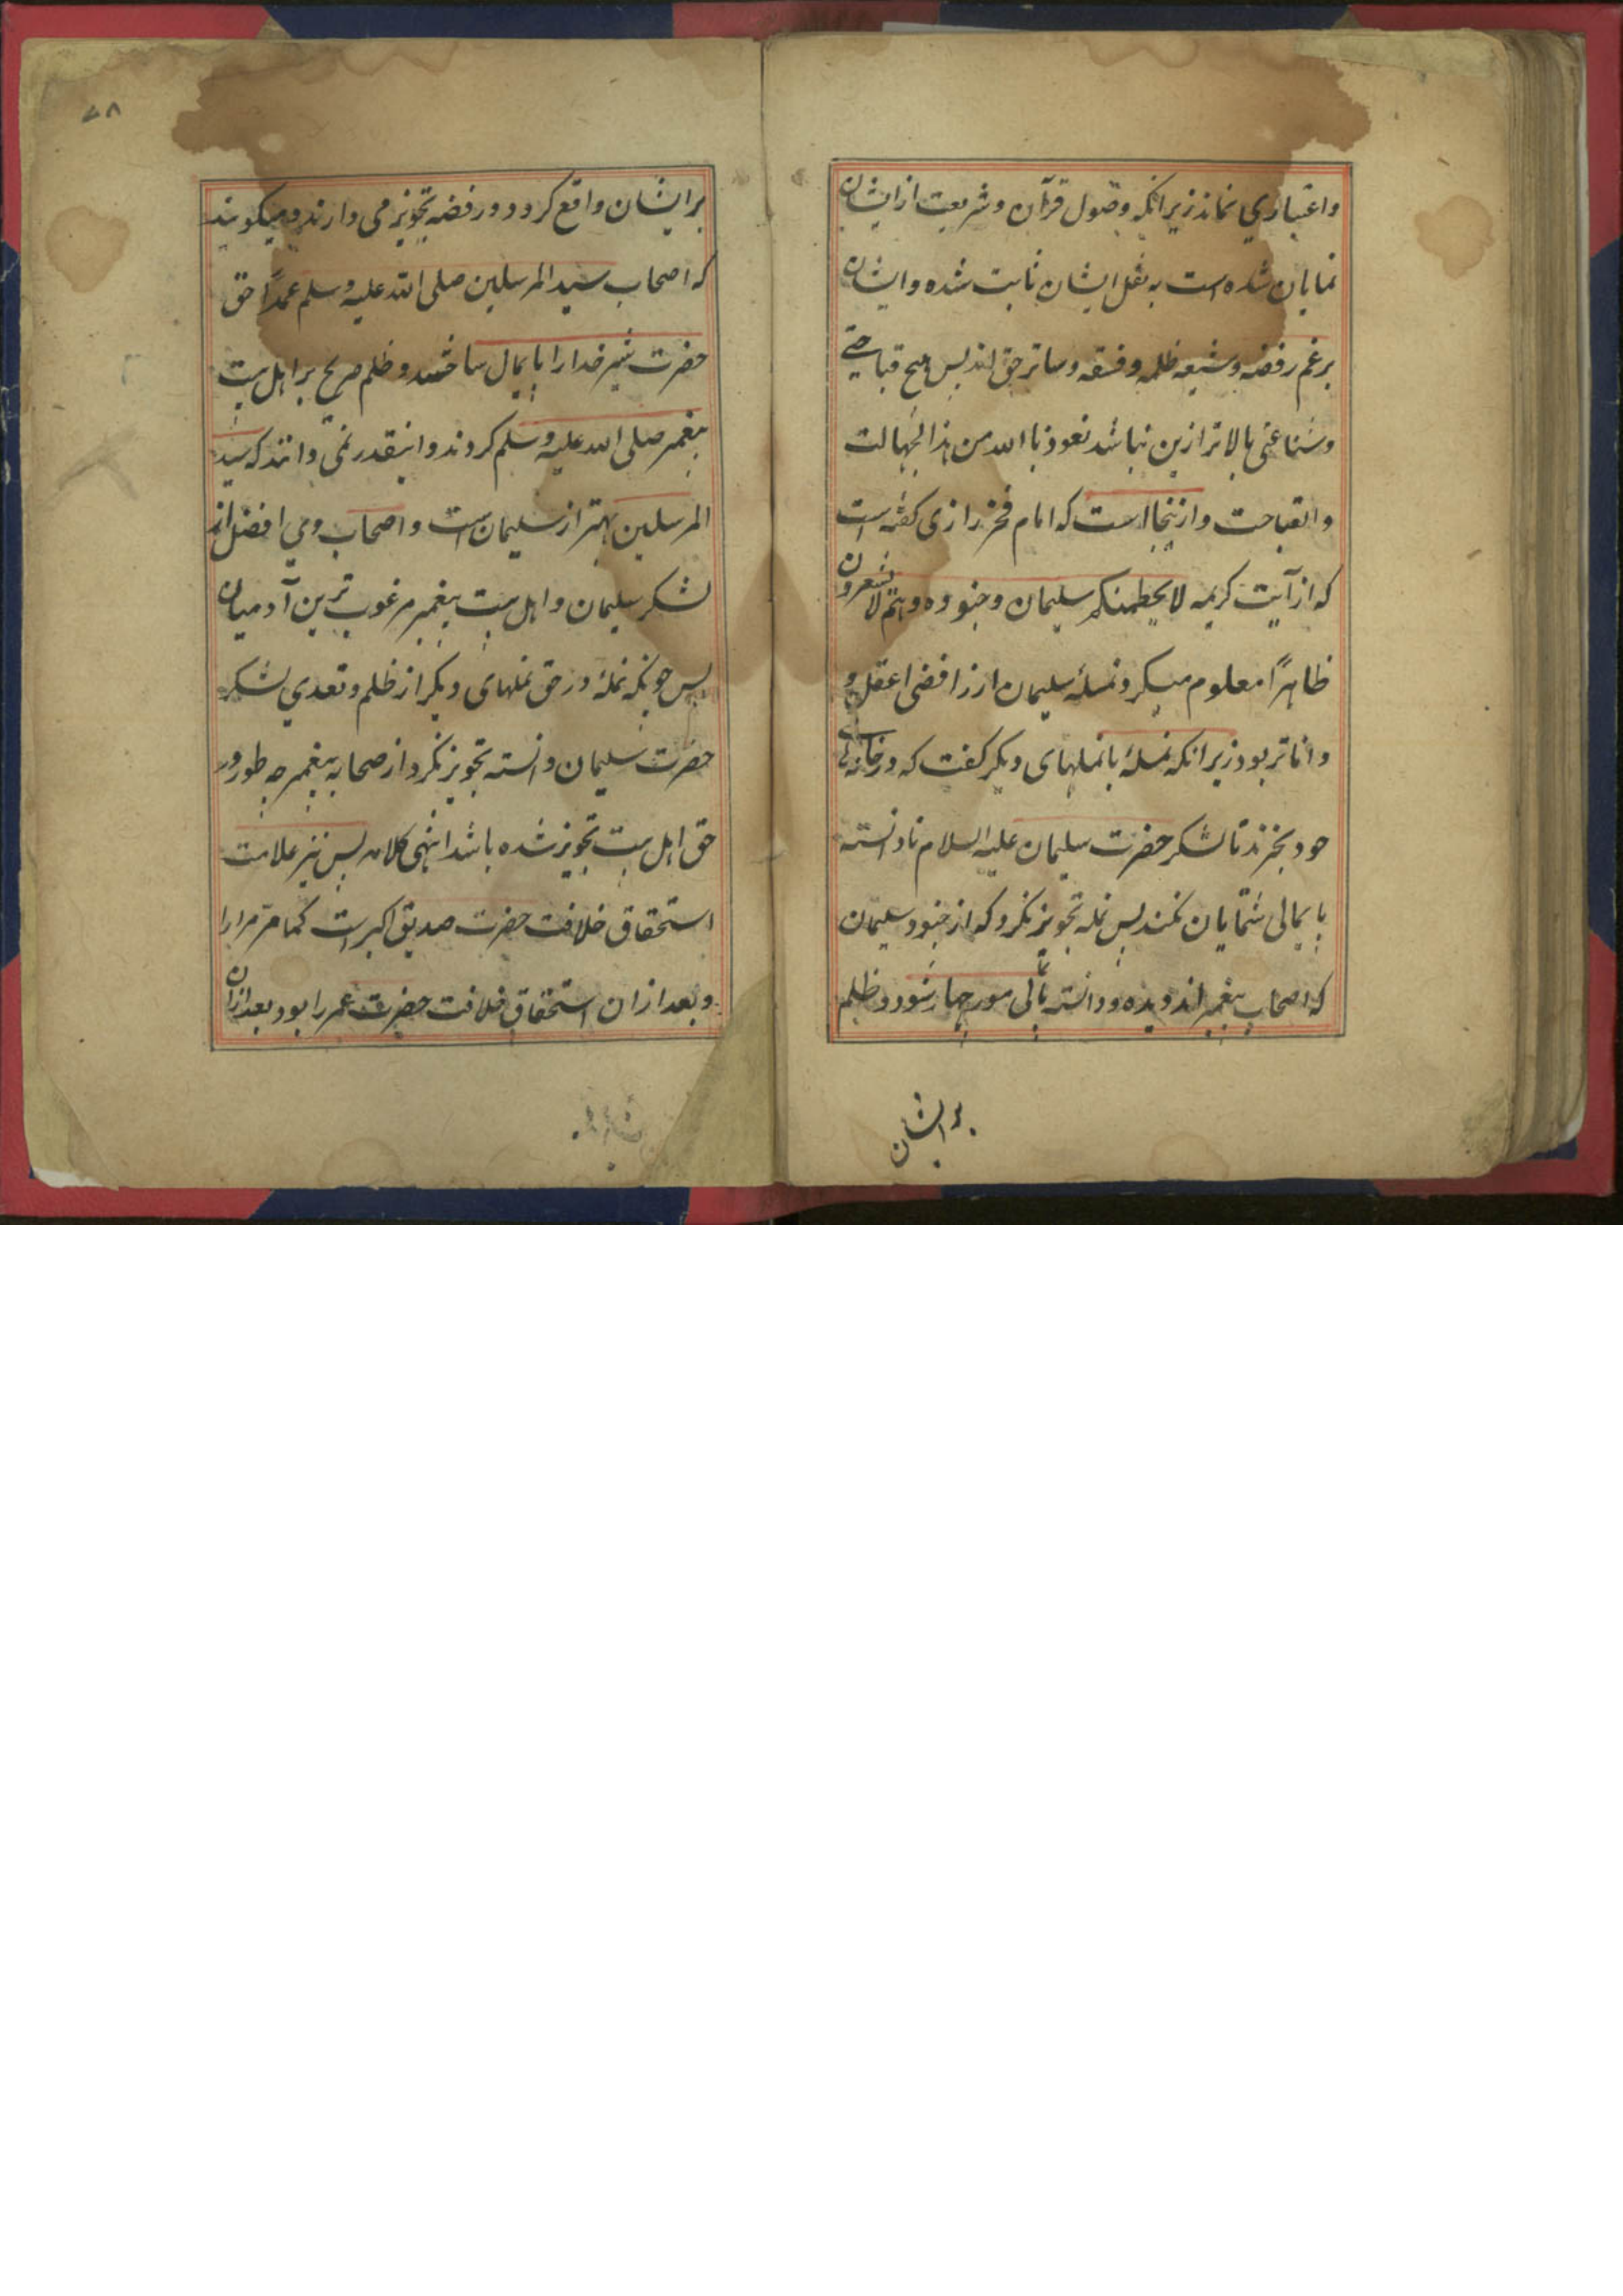 واعتباری نماند زیرانکه وصول قرآن وشریعت از ایشان
نمایان شده است به نقل ایشان ثابت شده وایشان
برغم رفضه وشیعه ظلمه وفسقه وساتر حق اند پس هیچ قباحتی
وشناعتی بالاتر ازین نباشد نعوذ باالله من هذا الجهالت
والقباحت وازینجا است که امام فخر رازی کفته است
که از آیت کریمه لا یحطمنکم سلیمان وجنوده وهم لا یشعرون
ظاهراً معلوم میکردد نملهٔ سلیمان از رافضی اعقل و
داناتر بود زیرانکه نملهٔ بانملهای دیکر کفت که در خانهای
خود بخزند تا لشکر حضرت سلیمان علیه السلام نادانسته
پایمالی شمایان نکنند پس نمله تجویز نکرد که از جنود سلیمان
که اصحاب پیغمبر اند دیده ودانسته پامالی مورچها رشود وظلم
بر ایشان
۷۸
بر ایشان واقع کردد ورفضه تجویز می دارند ومیکویند
که اصحاب سید المرسلین صلی الله علیه وسلم عمداً حق
حضرت شیر خدا را پایمال ساختند وظلم صریح بر اهل بیت
پیغمبر صلی الله علیه وسلم کردند واینقدر نمی دانند که سید
المرسلین بهتر از سلیمان است واصحاب وی افضل اند
لشکر سلیمان واهل بیت پیغمبر مرغوب ترین آدمیان
پس چونکه نملهٔ در حق نملهای دیکر از ظلم وتعدی لشکر
حضرت سلیمان دانسته تجویز نکرد از صحابه پیغمبر چه طور در
حق اهل بیت تجویز شده باشد انتهی کلامه پس نیز علامت
استحقاق خلافت حضرت صدیق اکبر است کما مرّ مرارا
وبعد ازان استحقاق خلافت حضرت عمر را بود بعد ازان